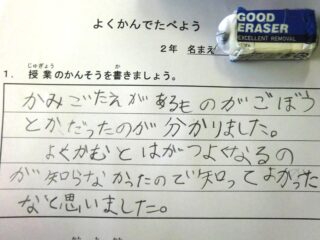 よくかんでたべよう
2年 名まえ
GOOD
ERASER
EXCELLENT REMOVAL
じゅぎょう か
1. 授業のかんそうを書きましょう。
かみごたえがあるものがごぼう
とかだったのが分かりました。
よくかむとはがつよくなるの
が知らなかったので知ってよかった
なと思いました。